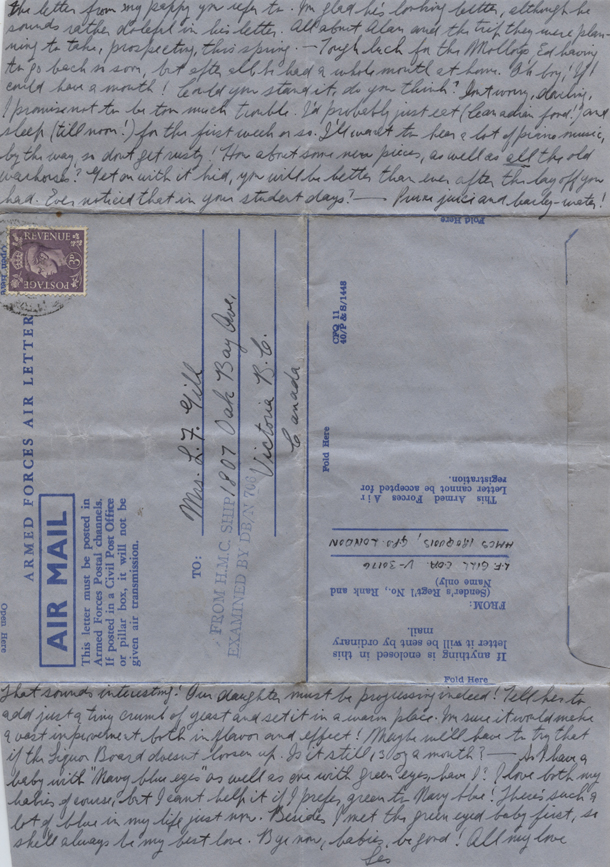 the letter from my pappy you refer to. I'm glad he's looking better, although he
sounds rather doleful in his letter. All about Alan and the trip they were plan-
ning to take, prospecting, this spring. — Tough luck for the Mollops Ed having
to go back so soon, but after all he had a whole month at home. Oh boy, if I
could have a month! Could you stand it, do you think? Don't worry, darling,
I promise not to be too much trouble. I'd probably just eat (Canadian food!) and
sleep (till noon!) for the first week or so. I'll want to hear a lot of piano music,
by the way, so don't get rusty! How about some new pieces, as well as all the old
warhorses? Get on with it kid, you will be better than ever after the lay off you
had. Ever noticed that in your student days? — Prune juice and barley-water!
REVENUE
3D
POSTAGE
Open Here
ARMED FORCES AIR LETTER
AIR MAIL
This letter must be posted in
Armed Forces Postal channels.
If posted in a Civil Post Office
or pillar box, it will not be
given air transmission.
Open Here
TO:
Mrs. L. F. Gill
1807 Oak Bay Ave,
Victoria B.C.
Canada
FROM H.M.C. SHIP
EXAMINED BY DB/N 706
Fold Here
GPO 11
40/P & S/1448
Fold Here
This Armed Forces Air
Letter cannot be accepted for
registration.
HMCS IROQUOIS, GPO. LONDON
L.F. GILL V-30176
(Sender's Reg't'l No., Rank and
Name only)
FROM:
If anything is enclosed in this
letter it will be sent by ordinary
mail.
Fold Here
That sounds interesting! Our daughter must be progressing indeed! Tell her to
add just a tiny crumb of yeast and set it in a warm place. I'm sure it would make
a vast improvement both in flavor and effect! Maybe we'll have to try that
if the Liquor Board doesn't loosen up. Is it still 13 oz a month? — So I have a
baby with "Navy blue eyes" as well as one with green eyes, have I? I love both my
babies of course, but I can't help it if I prefer green to Navy blue! There's such a
lot of blue in my life just now. Besides I met the green eyed baby first, so
she'll always be my best love. Bye now, babies, be good! All my love
Les